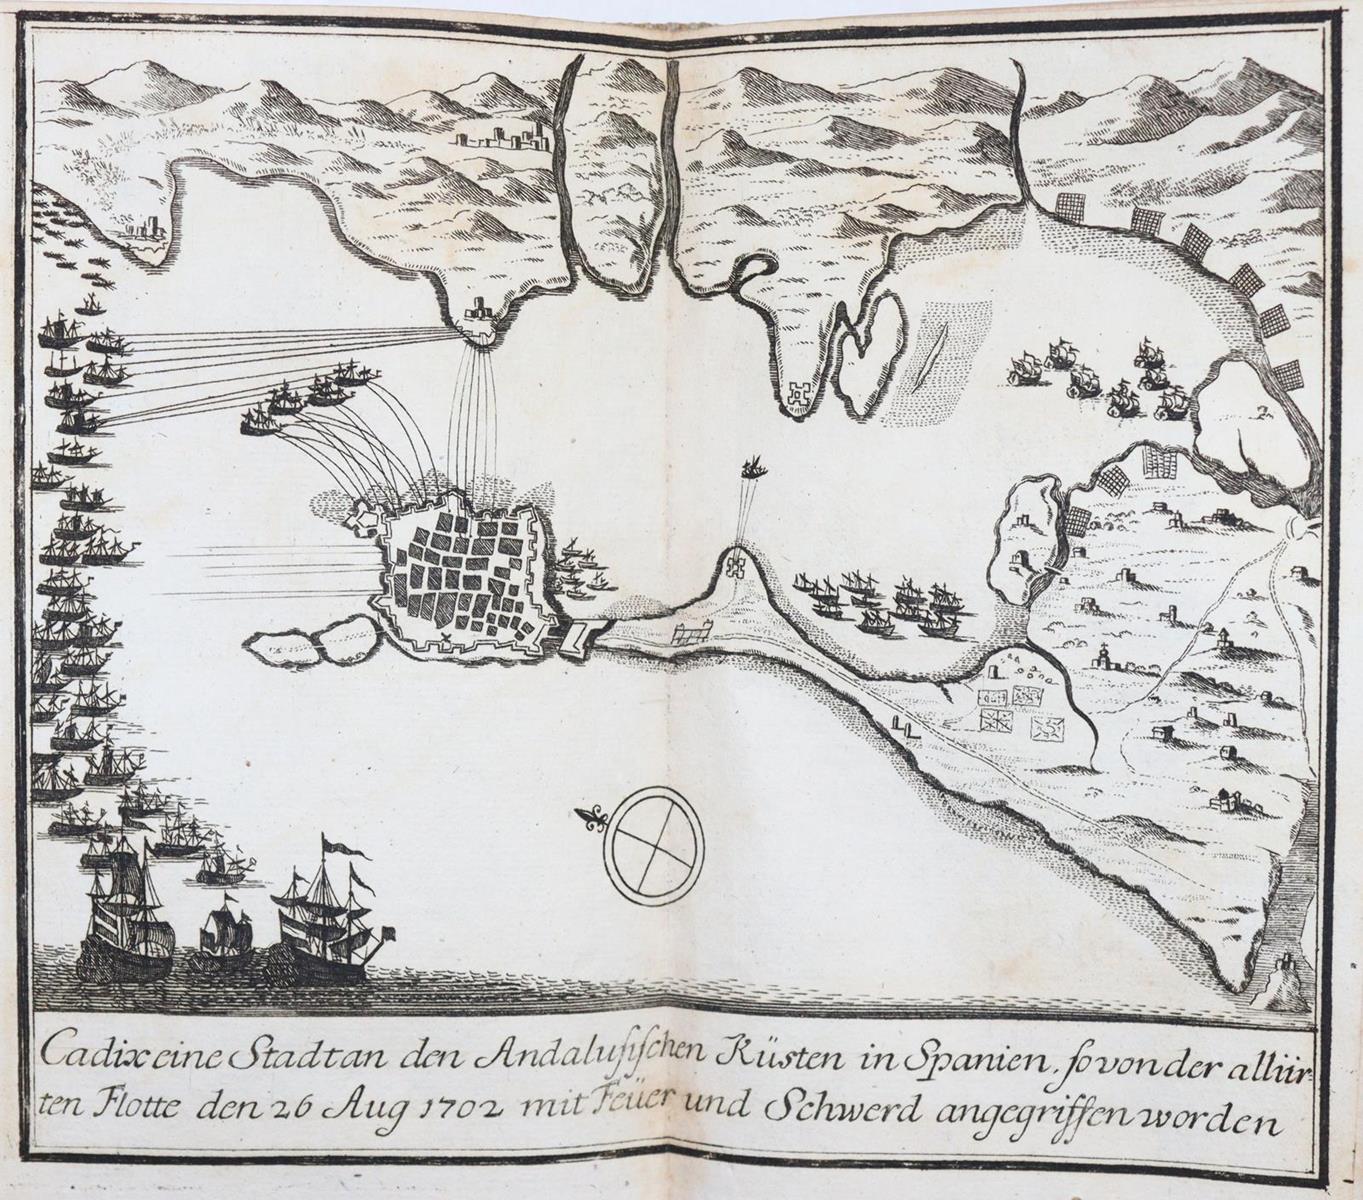 Cadix eine Stadt an den Andalusischen Küsten in Spanien, so von der alliir-
ten Flotte den 26 Aug 1702 mit Feüer und Schwerd angegriffen worden